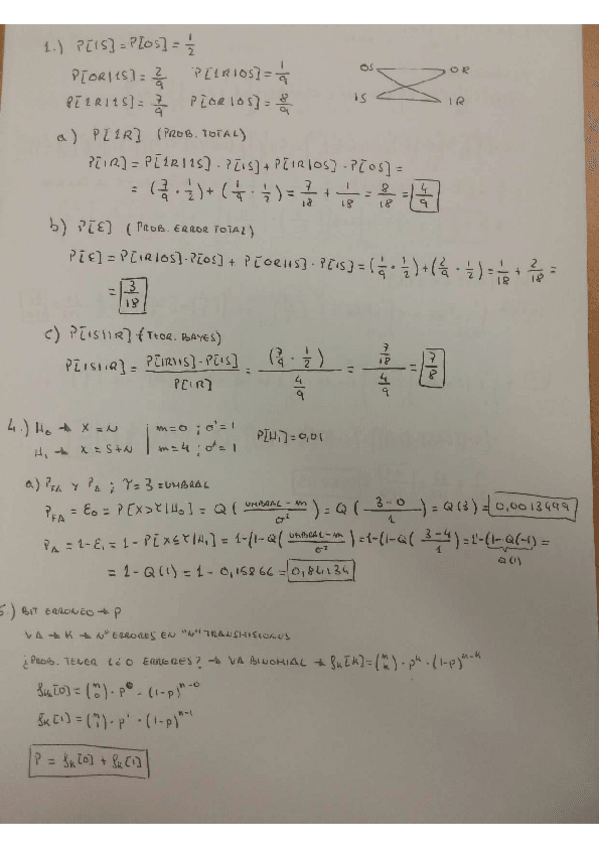 1.) P[1S] = P[0S] = 1/2
P[0R|1S] = 2/9 P[1R|0S] = 1/9
P[1R|1S] = 7/9 P[0R|0S] = 8/9
0S 0R
1S 1R
a) P[1R] (PROB. TOTAL)
P[1R] = P[1R|1S] · P[1S] + P[1R|0S] · P[0S] =
= (7/9 · 1/2) + (1/9 · 1/2) = 7/18 + 1/18 = 8/18 = 4/9
b) P[E] (PROB. ERROR TOTAL)
P[E] = P[1R|0S] · P[0S] + P[0R|1S] · P[1S] = (1/9 · 1/2) + (2/9 · 1/2) = 1/18 + 2/18 =
= 3/18
c) P[1S|1R] (TEOR. BAYES)
P[1S|1R] = P[1R|1S] · P[1S] / P[1R] = (7/9 · 1/2) / 4/9 = 7/18 / 4/9 = 7/8
4.) H0 → X = N | m=0 ; σ²=1 P[H1] = 0,01
H1 → X = S+N | m=4 ; σ²=1
a) PFA Y PD ; γ = 3 = UMBRAL
PFA = E0 = P[X>γ|H0] = Q(UMBRAL - m / σ²) = Q(3-0 / 1) = Q(3) = 0,0013499
PD = 1-E1 = 1 - P[X≤γ|H1] = 1-(1-Q(UMBRAL - m / σ²) = 1-(1-Q(3-4 / 1) = 1-(1-Q(-1) =
Q(1)
= 1 - Q(1) = 1 - 0,15866 = 0,84134
5.) BIT ERRONEO → P
VA → K → Nº ERRORES EN "N" TRANSMISIONES
¿PROB. TENER 1 ó 0 ERRORES? → VA BINOMIAL → fK[K] = (n k) · p^k · (1-p)^n-k
fK[0] = (n 0) · p^0 · (1-p)^n-0
fK[1] = (n 1) · p^1 · (1-p)^n-1
P = fK[0] + fK[1]